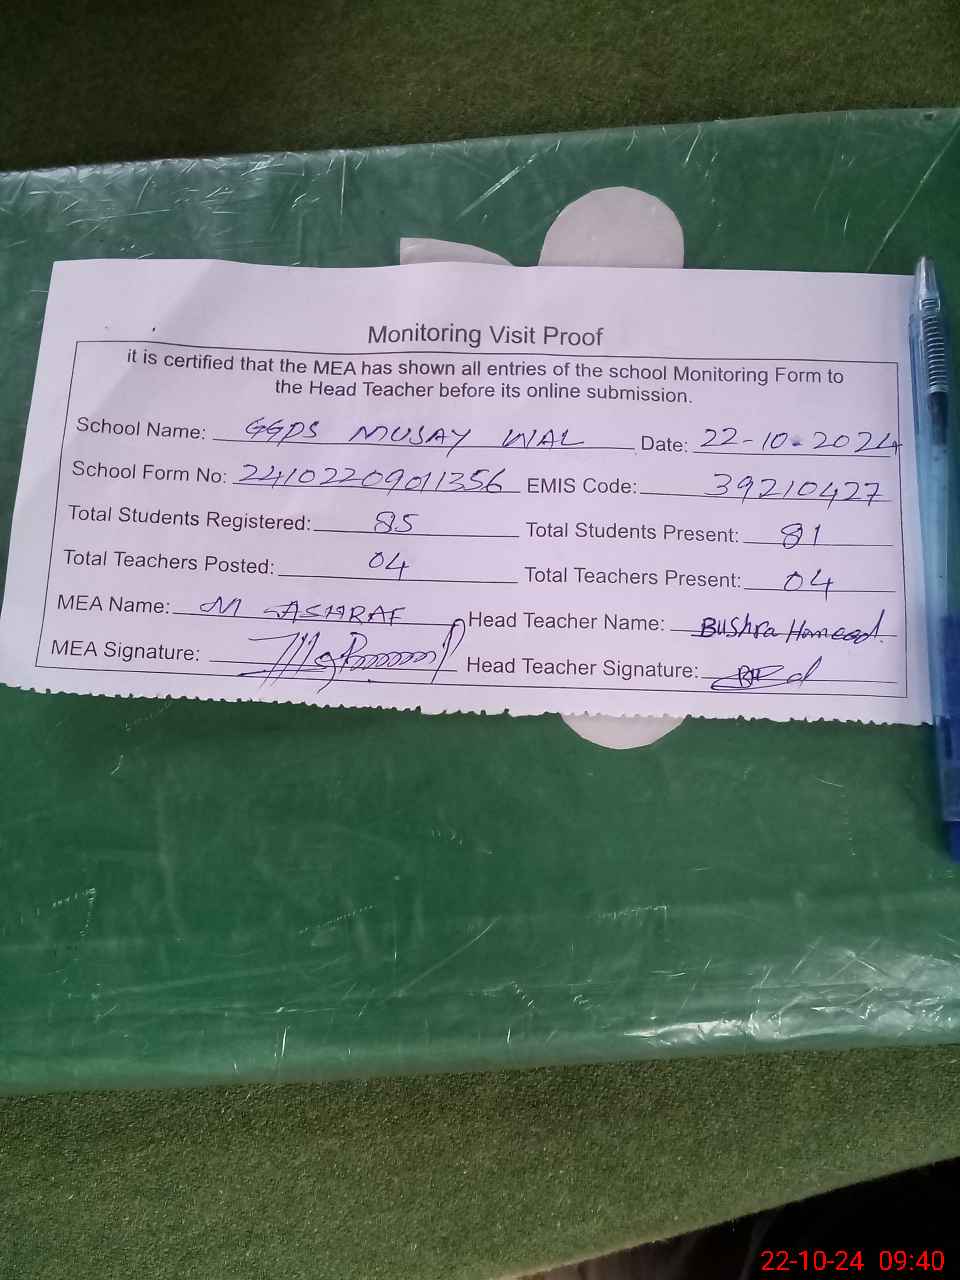 Monitoring Visit Proof
it is certified that the MEA has shown all entries of the school Monitoring Form to
the Head Teacher before its online submission.
School Name: GGPS MUSAY WAL Date: 22-10-2024
School Form No: 24102209011356 EMIS Code: 39210427
Total Students Registered: 85 Total Students Present: 81
Total Teachers Posted: 04 Total Teachers Present: 04
MEA Name: M ASHRAF Head Teacher Name: Bushra Hameed.
MEA Signature: Head Teacher Signature:
22-10-24 09:40